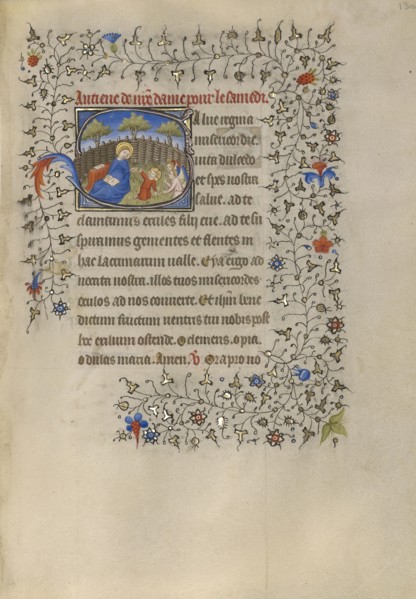 Antiene de nr̄e dame pour le samedi.
Salue regina
misericordie.
uita dulcedo
et spes nostra
salue. ad te
clamamus exules filij eue. ad te su
spiramus gementes et flentes in
hac lacrimarum ualle. Eya ergo ad
uocata nostra. illos tuos misericordes
oculos ad nos conuerte. Et ihm̄ bene
dictum fructum uentris tui nobis post
hoc exilium ostende. O clemens. o pia.
o dulcis maria. Amen. ℣ Ora pro no